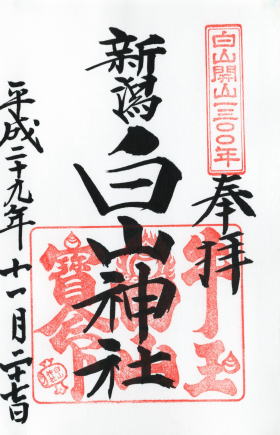 白山開山一三〇〇年
奉拝
新潟
白山神社
牛王
平成二十九年十一月二十七日